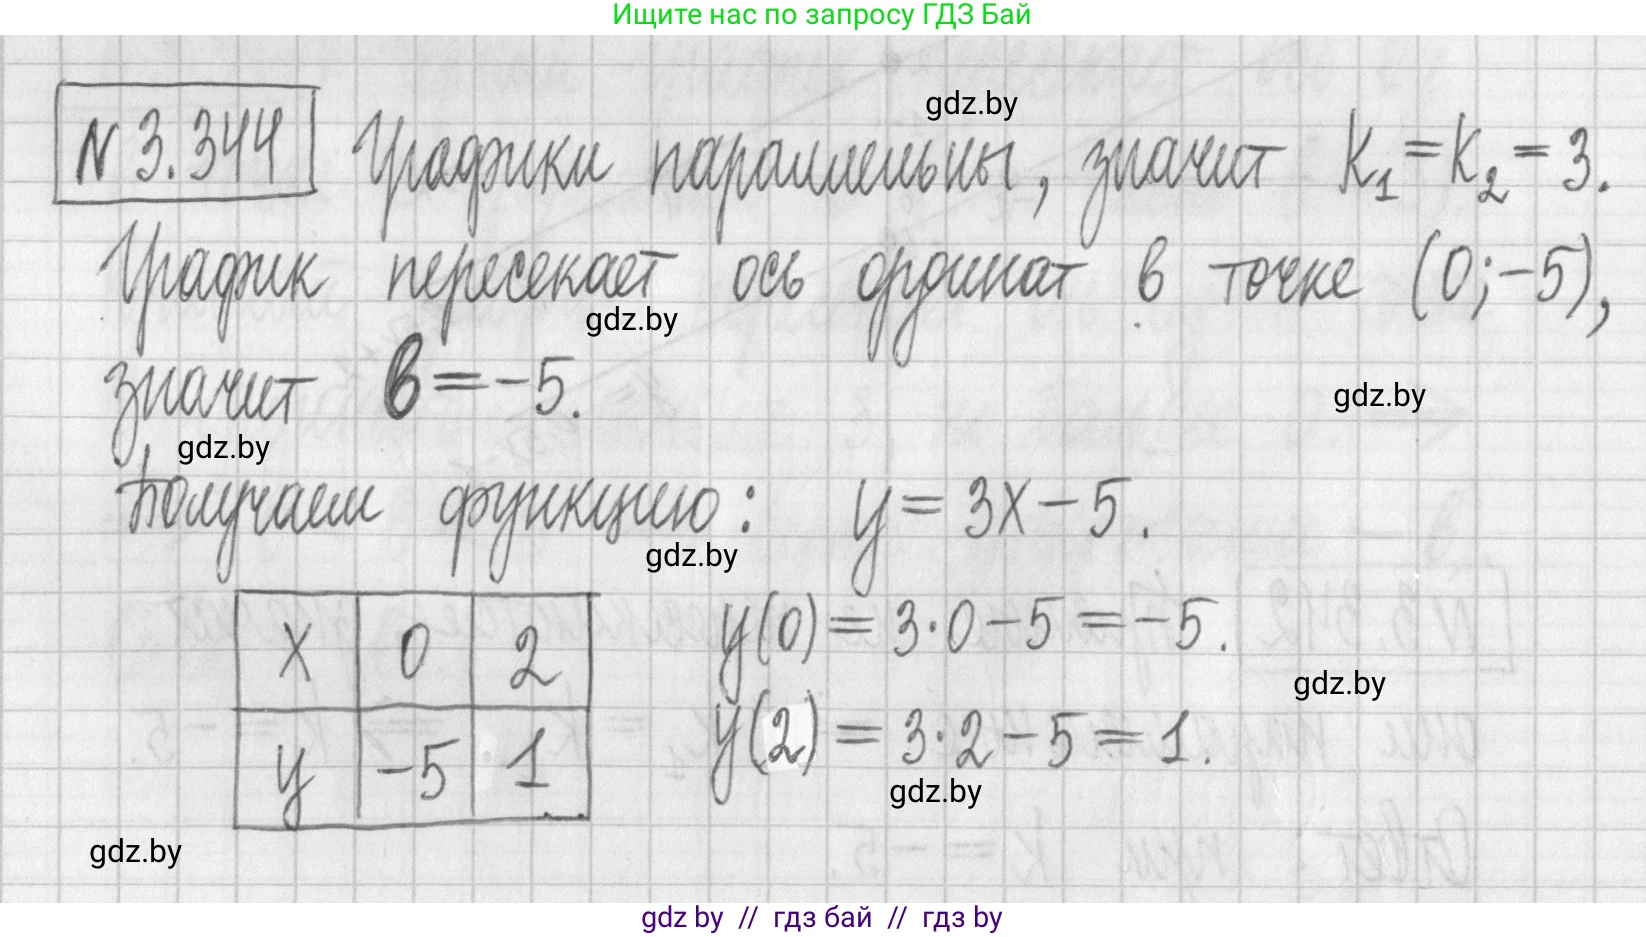 Ищите нас по запросу ГДЗ Бай
gdz.by
N 3.344 Графики параллельны, значит K₁ = K₂ = 3.
График пересекает ось ординат в точке (0; -5),
gdz.by
значит в = -5.
gdz.by
gdz.by
Получаем функцию: y = 3x - 5.
gdz.by
x 0 2 y(0) = 3·0 - 5 = -5.
gdz.by
y -5 1 y(2) = 3·2 - 5 = 1.
gdz.by
gdz.by
gdz by // гдз бай // гдз by